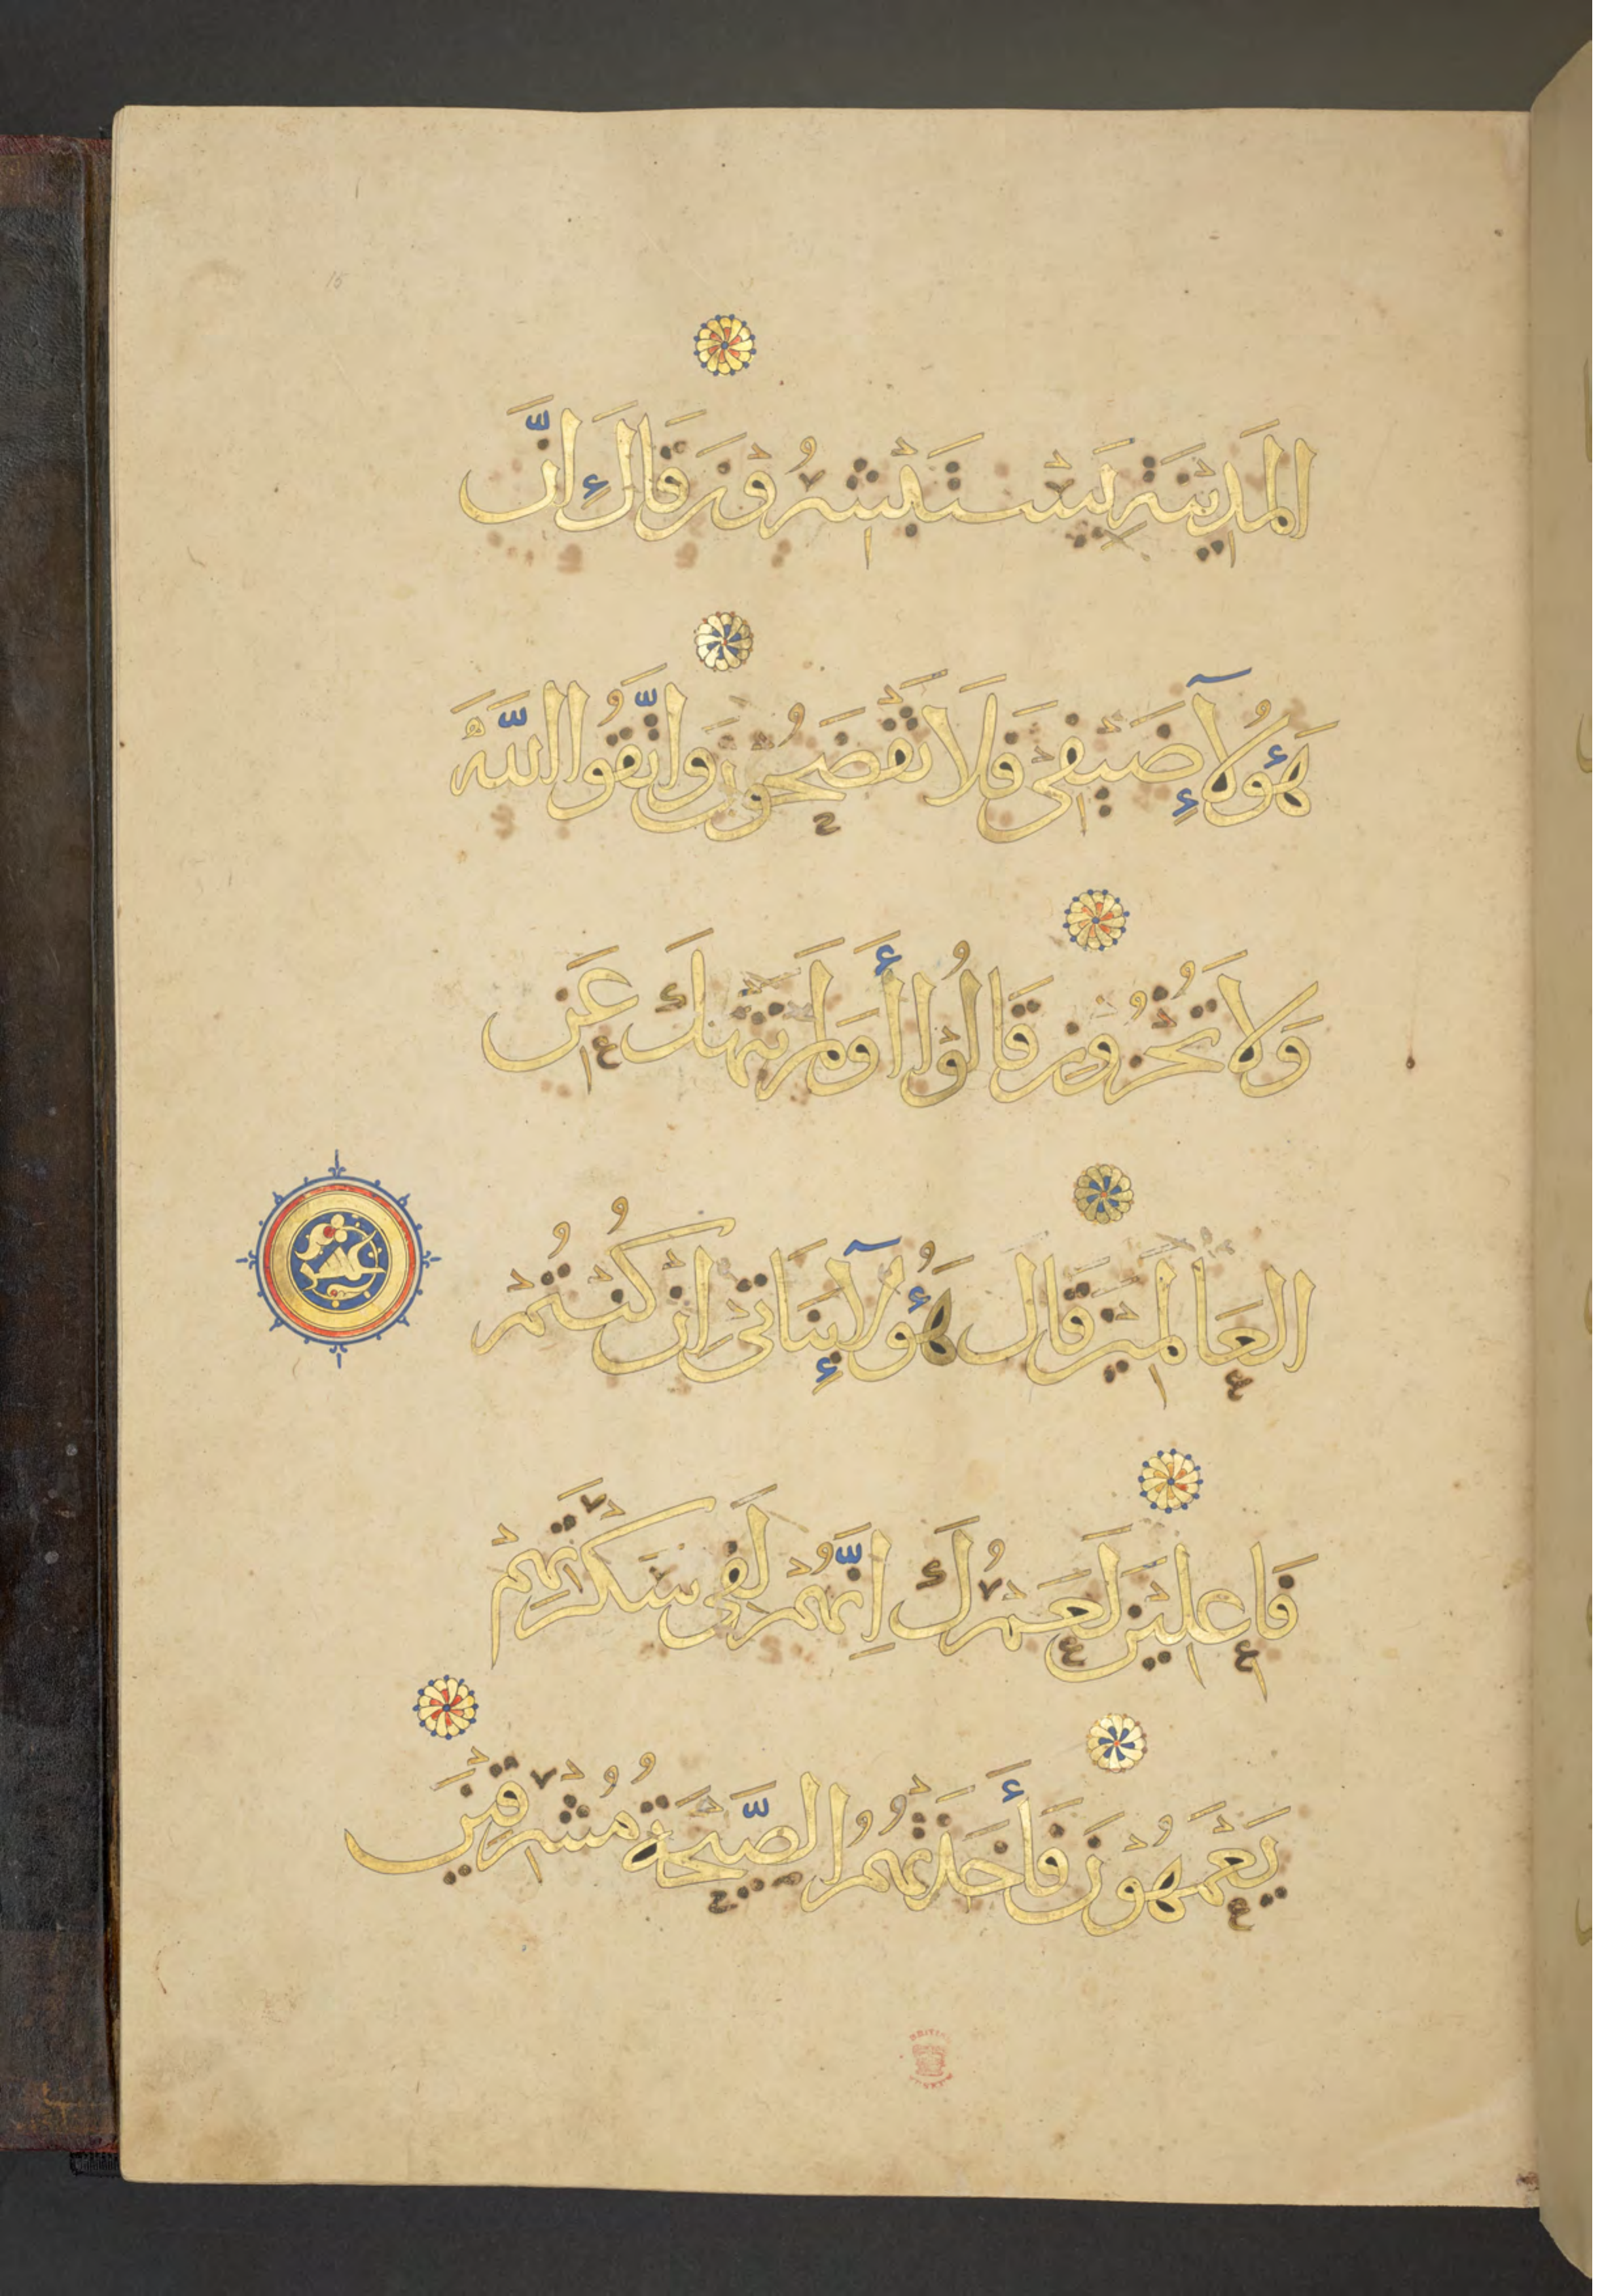 المَدِيْنَةِ يَسْتَبْشِرُوْنَ قَالَ إِنَّ
هَؤُلَآءِ ضَيْفِيْ فَلَا تَفْضَحُوْنِ وَاتَّقُوا اللَّهَ
وَلَا تُخْزُوْنِ قَالُوْا أَوَلَمْ نَنْهَكَ عَنِ
العَالَمِيْنَ قَالَ هَؤُلَآءِ بَنَاتِيْ اِنْ كُنْتُمْ
فَاعِلِيْنَ لَعَمْرُكَ اِنَّهُمْ لَفِيْ سَكْرَتِهِمْ
يَعْمَهُوْنَ فَأَخَذَتْهُمُ الصَّيْحَةُ مُشْرِقِيْنَ